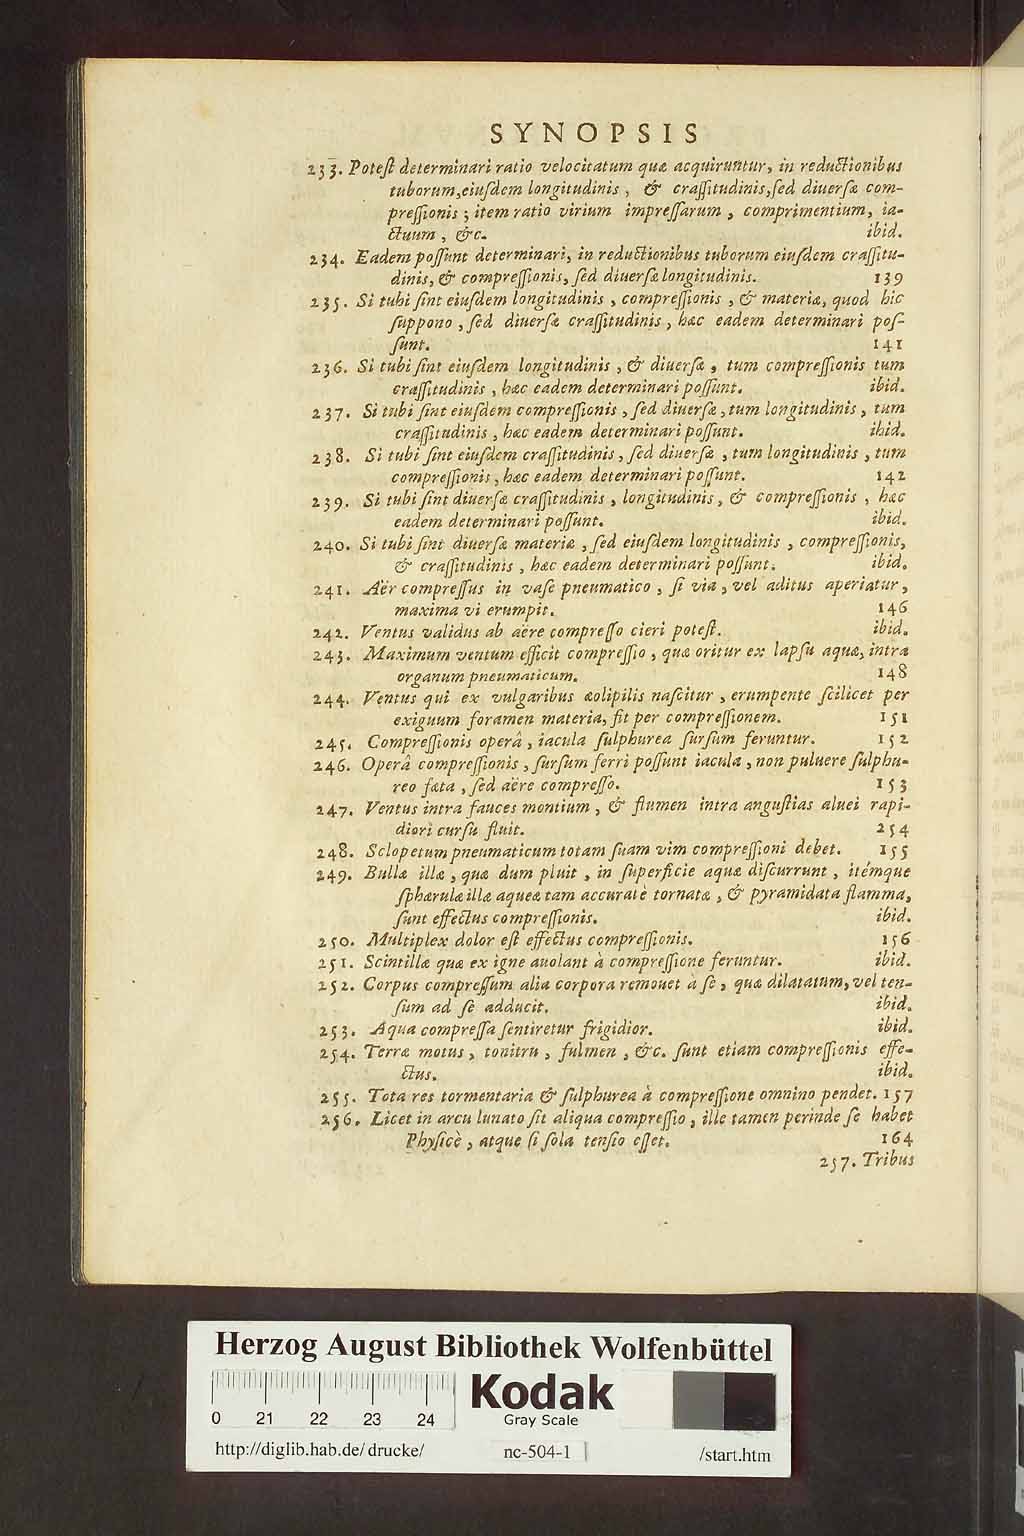 SYNOPSIS
233. Poteſt determinari ratio velocitatum quæ acquiruntur, in reductionibus
tuborum, eiuſdem longitudinis, & craſſitudinis, ſed diuerſæ com-
preſſionis; item ratio virium impreſſarum, comprimentium, ia-
ctuum, &c. ibid.
234. Eadem poſſunt determinari, in reductionibus tuborum eiuſdem craſſitu-
dinis, & compreſſionis, ſed diuerſæ longitudinis. 139
235. Si tubi ſint eiuſdem longitudinis, compreſſionis, & materiæ, quod hic
ſuppono, ſed diuerſæ craſſitudinis, hæc eadem determinari poſ-
ſunt. 141
236. Si tubi ſint eiuſdem longitudinis, & diuerſæ, tum compreſſionis tum
craſſitudinis, hæc eadem determinari poſſunt. ibid.
237. Si tubi ſint eiuſdem compreſſionis, ſed diuerſæ, tum longitudinis, tum
craſſitudinis, hæc eadem determinari poſſunt. ibid.
238. Si tubi ſint eiuſdem craſſitudinis, ſed diuerſæ, tum longitudinis, tum
compreſſionis, hæc eadem determinari poſſunt. 142
239. Si tubi ſint diuerſæ craſſitudinis, longitudinis, & compreſſionis, hæc
eadem determinari poſſunt. ibid.
240. Si tubi ſint diuerſæ materiæ, ſed eiuſdem longitudinis, compreſſionis,
& craſſitudinis, hæc eadem determinari poſſunt. ibid.
241. Aër compreſſus in vaſe pneumatico, ſi via, vel aditus aperiatur,
maxima vi erumpit. 146
242. Ventus validus ab aëre compreſſo cieri poteſt. ibid.
243. Maximum ventum efficit compreſſio, quæ oritur ex lapſu aquæ, intra
organum pneumaticum. 148
244. Ventus qui ex vulgaribus æolipilis naſcitur, erumpente ſcilicet per
exiguum foramen materia, fit per compreſſionem. 151
245. Compreſſionis operâ, iacula ſulphurea ſurſum feruntur. 152
246. Operâ compreſſionis, ſurſum ferri poſſunt iacula, non puluere ſulphu-
reo fata, ſed aëre compreſſo. 153
247. Ventus intra fauces montium, & flumen intra anguſtias aluei rapi-
diori curſu fluit. 254
248. Sclopetum pneumaticum totam ſuam vim compreſſioni debet. 155
249. Bullæ illæ, quæ dum pluit, in ſuperficie aquæ diſcurrunt, itémque
ſphærulæ illæ aqueæ tam accuratè tornatæ, & pyramidata flamma,
ſunt effectus compreſſionis. ibid.
250. Multiplex dolor eſt effectus compreſſionis. 156
251. Scintillæ quæ ex igne auolant à compreſſione feruntur. ibid.
252. Corpus compreſſum alia corpora remouet à ſe, quæ dilatatum, vel ten-
ſum ad ſe adducit. ibid.
253. Aqua compreſſa ſentiretur frigidior. ibid.
254. Terræ motus, tonitru, fulmen, &c. ſunt etiam compreſſionis effe-
ctus. ibid.
255. Tota res tormentaria & ſulphurea à compreſſione omnino pendet. 157
256. Licet in arcu lunato ſit aliqua compreſſio, ille tamen perinde ſe habet
Phyſicè, atque ſi ſola tenſio eſſet. 164
257. Tribus
Herzog August Bibliothek Wolfenbüttel
0 21 22 23 24
Kodak
Gray Scale
http://diglib.hab.de/drucke/ nc-504-1 /start.htm